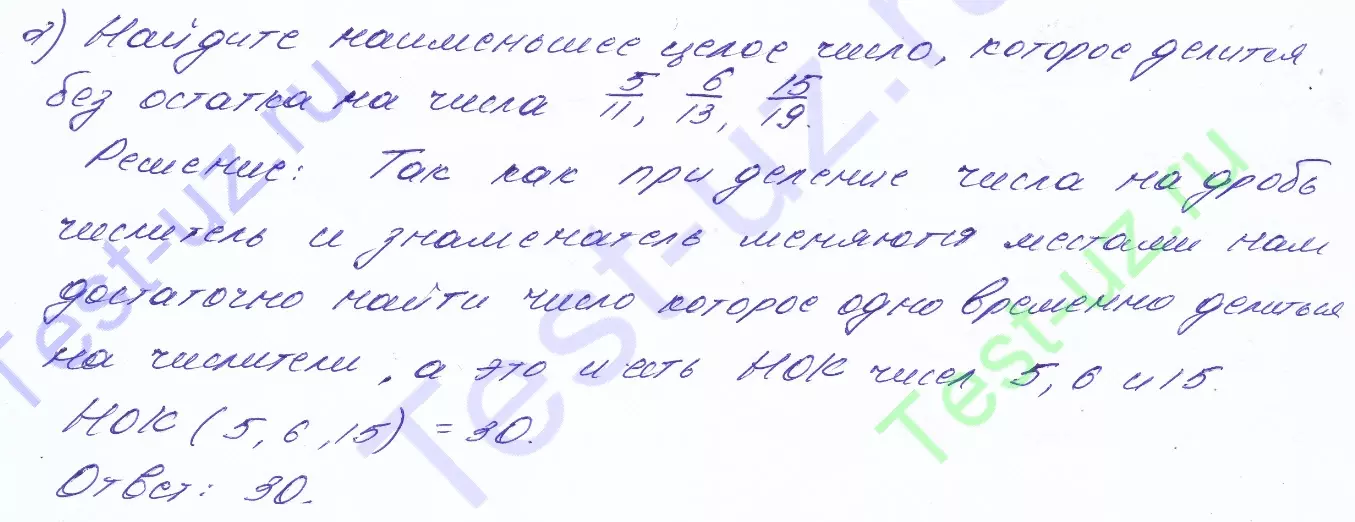 2) Найдите наименьшее целое число, которое делится
без остатка на числа 5/11, 6/13, 15/19.
Решение: Так как при деление числа на дробь
числитель и знаменатель меняются местами нам
достаточно найти число которое одно временно делиться
на числители, а это и есть НОК чисел 5, 6 и 15.
НОК (5, 6, 15) = 30.
Ответ: 30.
Test-uz.ru
Test-uz.ru
Test-uz.ru